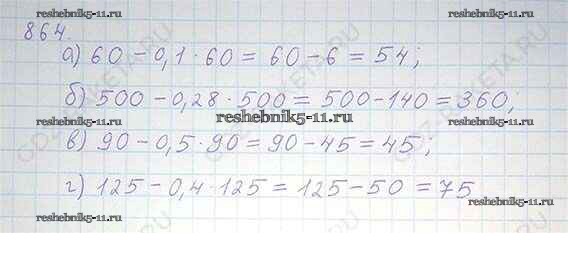 864.
reshebnik5-11.ru
reshebnik5-11.ru
а) 60 – 0,1 · 60 = 60 – 6 = 54;
б) 500 – 0,28 · 500 = 500 – 140 = 360;
reshebnik5-11.ru
в) 90 – 0,5 · 90 = 90 – 45 = 45;
г) 125 – 0,4 · 125 = 125 – 50 = 75
reshebnik5-11.ru
reshebnik5-11.ru